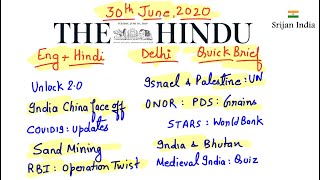 30th June, 2020
Srijan India
THE HINDU
Eng + Hindi
Delhi
Quick Brief
Unlock 2.0
Israel & Palestine: UN
India China face off
ONOR: PDS: Grains
COVID19: Updates
STARS: World Bank
Sand Mining
India & Bhutan
RBI: Operation Twist
Medieval India: Quiz